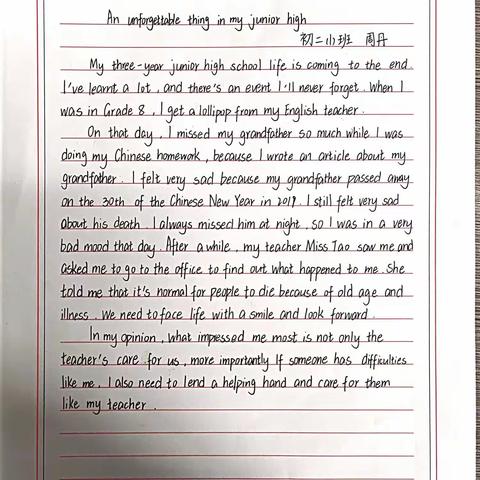 An unforgettable thing in my junior high
初二小班 周丹
My three-year junior high school life is coming to the end.
I've learnt a lot, and there's an event I'll never forget. When I
was in Grade 8, I get a lollipop from my English teacher.
On that day, I missed my grandfather so much while I was
doing my Chinese homework, because I wrote an article about my
grandfather. I felt very sad because my grandfather passed away
on the 30th of the Chinese New Year in 2019. I still felt very sad
about his death. I always missed him at night, so I was in a very
bad mood that day. After a while, my teacher Miss Tao saw me and
asked me to go to the office to find out what happened to me. She
told me that it's normal for people to die because of old age and
illness. We need to face life with a smile and look forward.
In my opinion, what impressed me most is not only the
teacher's care for us, more importantly If someone has difficulties
like me, I also need to lend a helping hand and care for them
like my teacher.